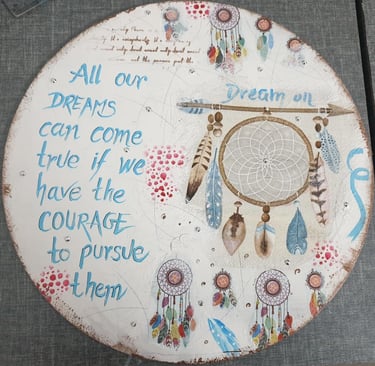 All our
DREAMS
can come
true if we
have the
COURAGE
to pursue
them
Dream on